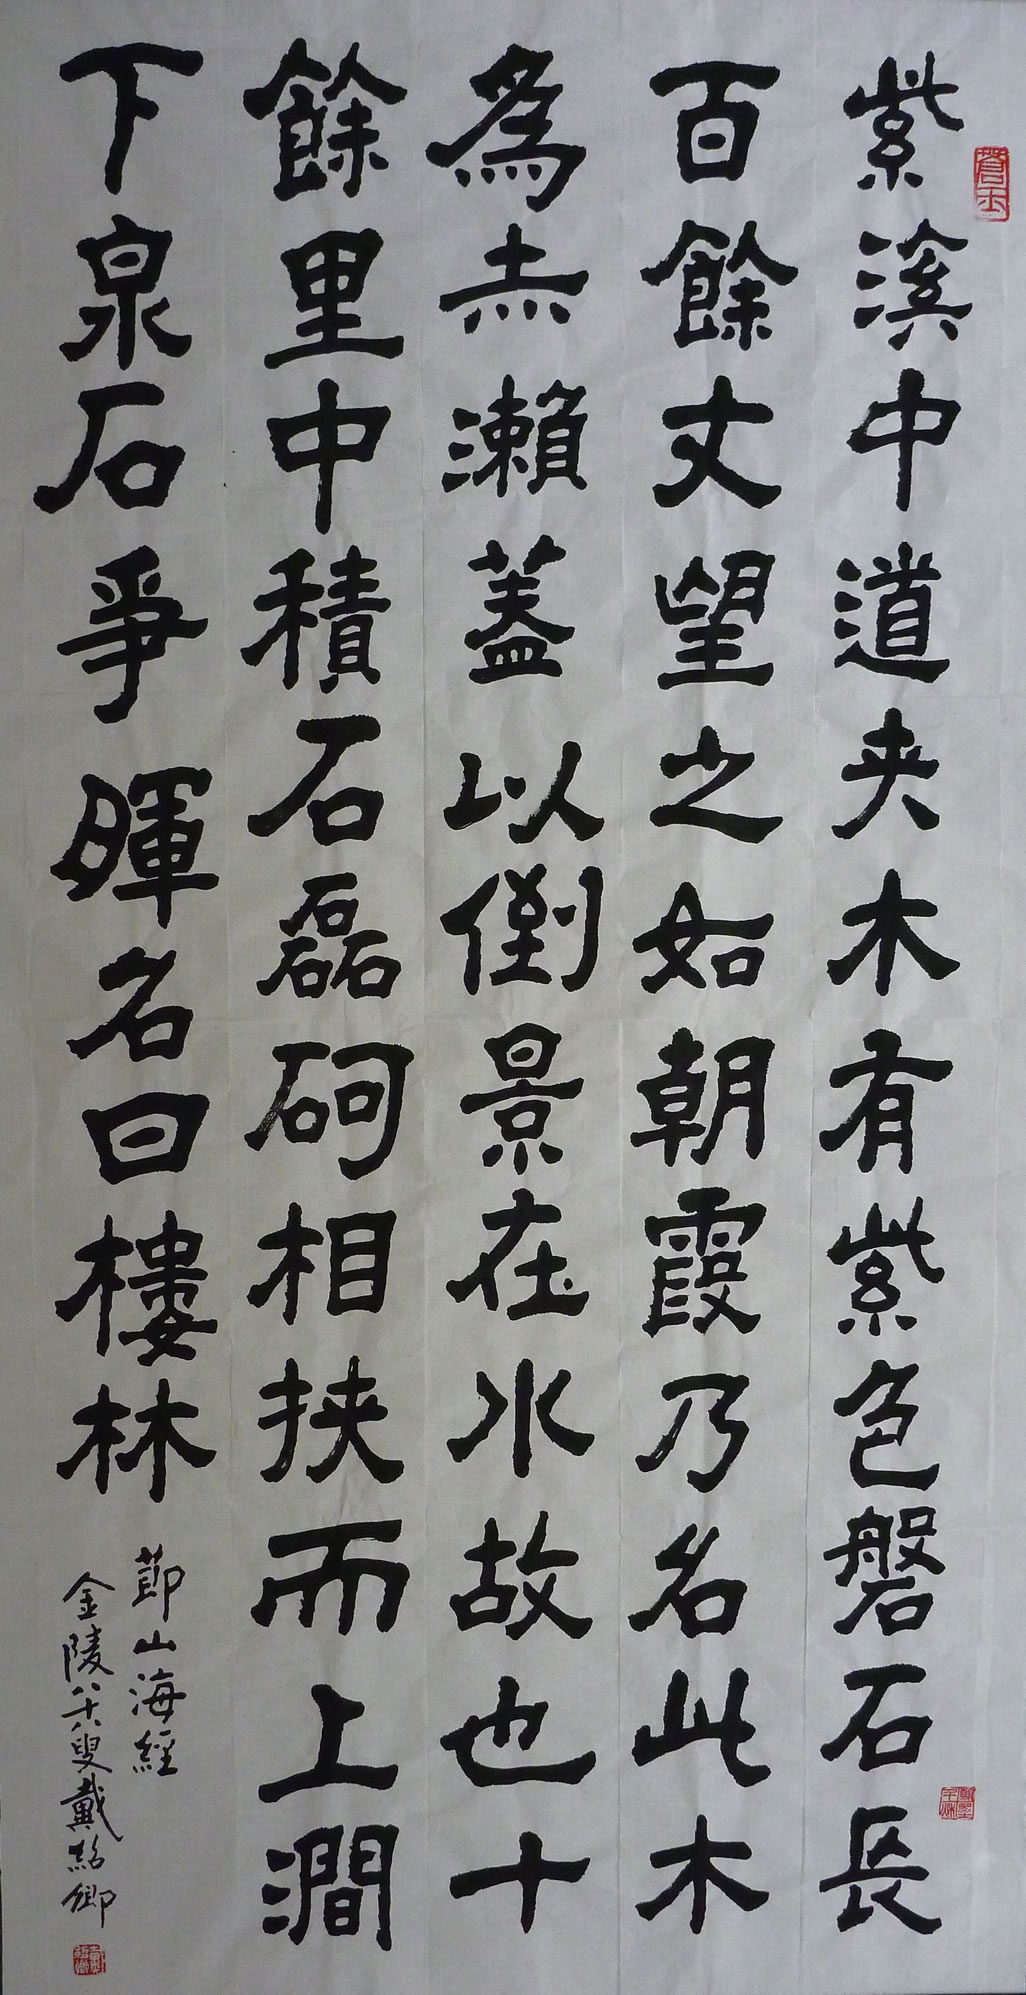 紫溪中道夾木有紫色磐石長
百餘丈望之如朝霞乃名此木
為赤瀨蓋以倒景在水故也十
餘里中積石磊砢相挾而上澗
下泉石爭暉名曰樓林
節山海經
金陵八十八叟戴紹卿